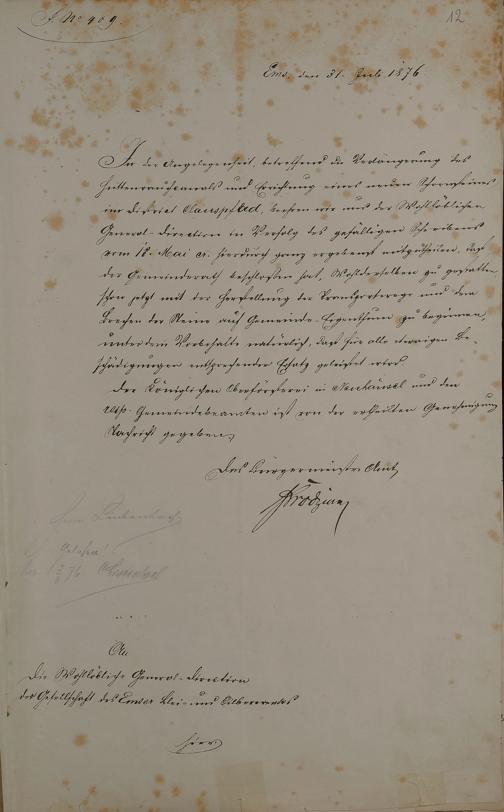 J. No 409.
12
Ems, den 31. Juli 1876.
In der Angelegenheit, betreffend die Verlängerung des
Hüttenrauchcanals und Errichtung eines neuen Schornsteines
im District Clauspfad, beehren wir uns der Wohllöblichen
General-Direction in Verfolg des gefälligen Schreibens
vom 18. Mai cr. hierdurch ganz ergebenst mitzutheilen, daß
der Gemeinderath beschlossen hat, Wohlderselben zu gestatten
schon jetzt mit der Herstellung der Transportwege und dem
Brechen der Steine auf Gemeinde-Eigenthum zu beginnen,
unter dem Vorbehalte natürlich, daß für alle etwaigen Be-
schädigungen entsprechender Ersatz geleistet wird.
Der Königlichen Oberförsterei in Neuhäusel und den
Gemeindebeamten ist von der ertheilten Genehmigung
Nachricht gegeben.
Das Bürgermeister-Amt
Herrn
Gelesen!
76
An
Die Wohllöbliche General-Direction
der Gesellschaft des Emser Blei- und Silberwerkes
hier.